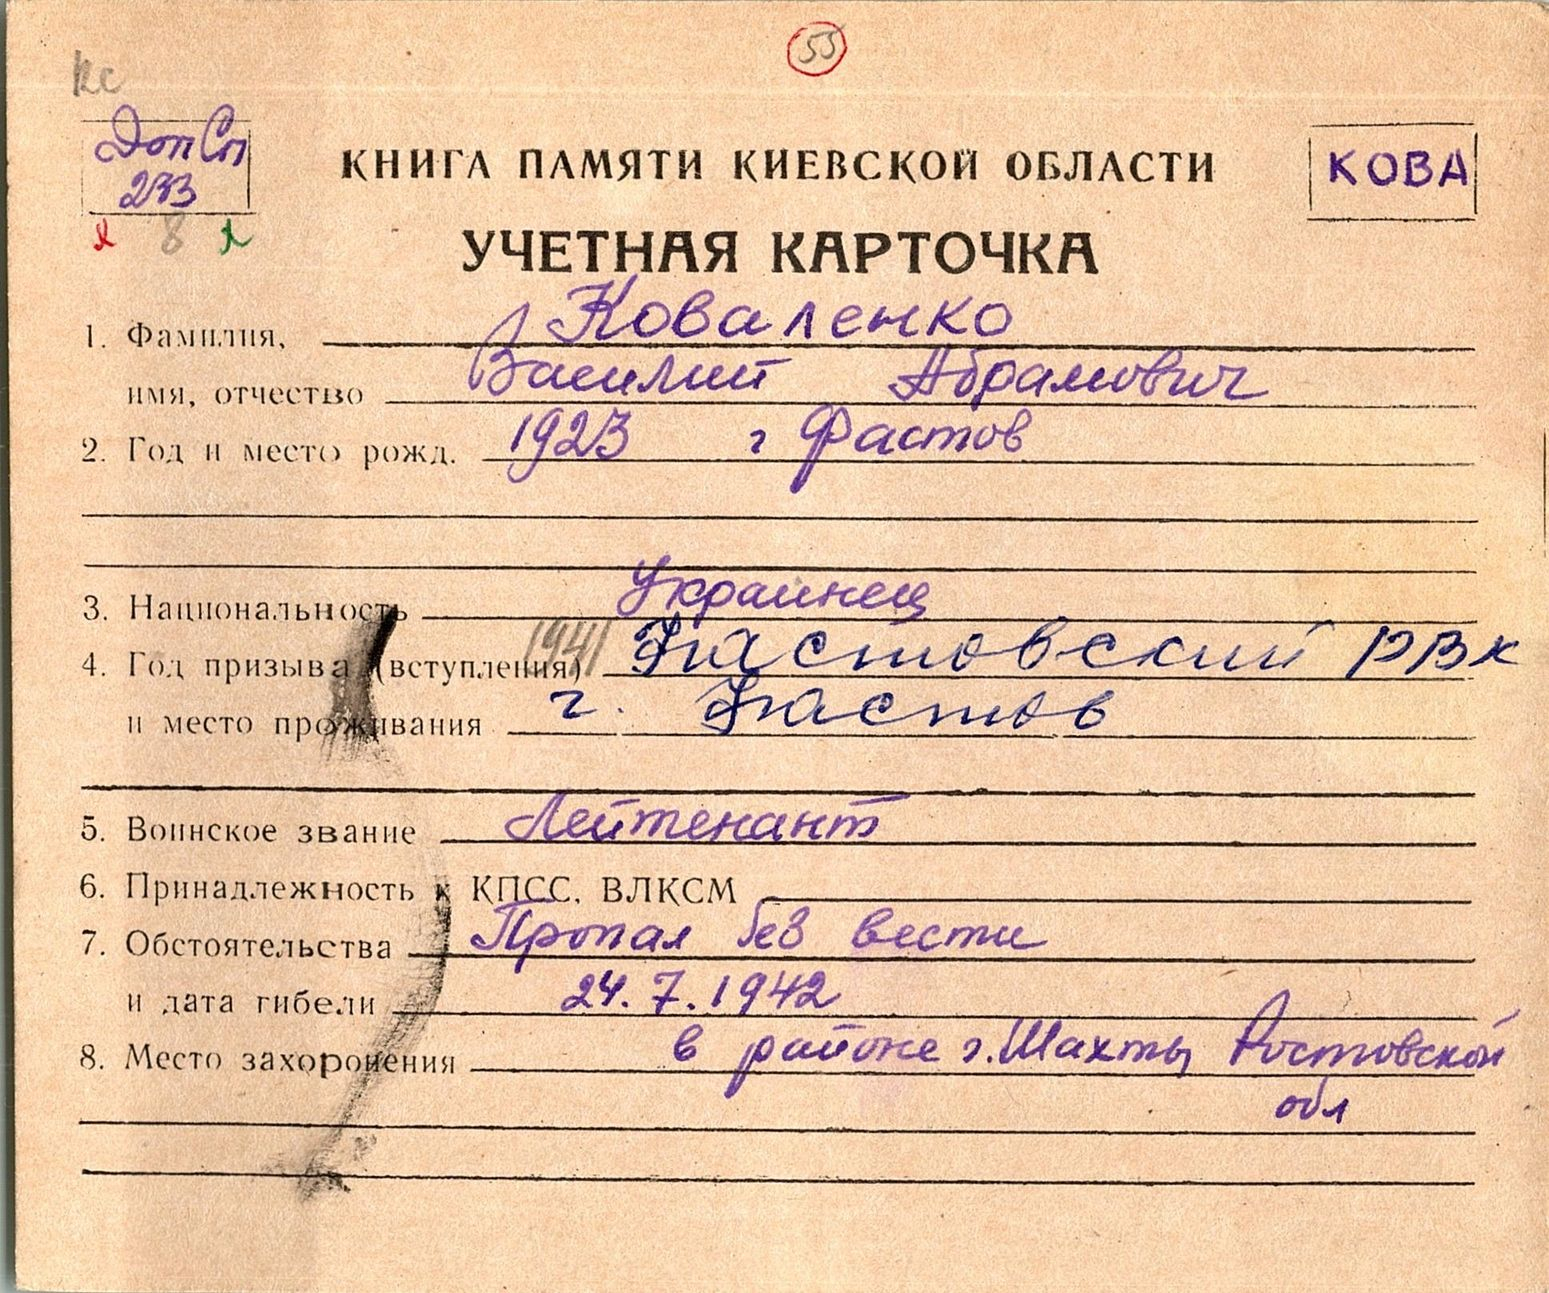 55
кс
ДопСп
233
8
КНИГА ПАМЯТИ КИЕВСКОЙ ОБЛАСТИ
КОВА
УЧЕТНАЯ КАРТОЧКА
1. Фамилия, Коваленко
имя, отчество Василий Абрамович
2. Год и место рожд. 1923 г Фастов
3. Национальность Украинец
4. Год призыва (вступления) 1941 Фастовский РВК
и место проживания г. Фастов
5. Воинское звание Лейтенант
6. Принадлежность к КПСС, ВЛКСМ
7. Обстоятельства Пропал без вести
и дата гибели 24.7.1942
8. Место захоронения в районе г. Шахты Ростовской
обл